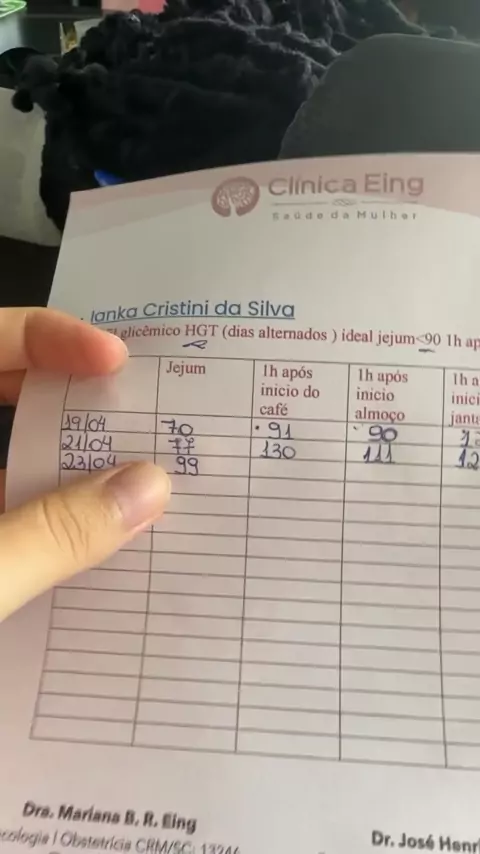 Clínica Eing
Saúde da Mulher
Ianka Cristini da Silva
glicêmico HGT (dias alternados ) ideal jejum<90 1h ap
Jejum
1h após
inicio do
café
1h após
inicio
almoço
1h a
inici
jant
19/04 70 91 90
21/04 77 130 111 12
23/04 99
Dra. Mariana B. R. Eing
cologia | Obstetrícia CRM/SC: 13246
Dr. José Henri